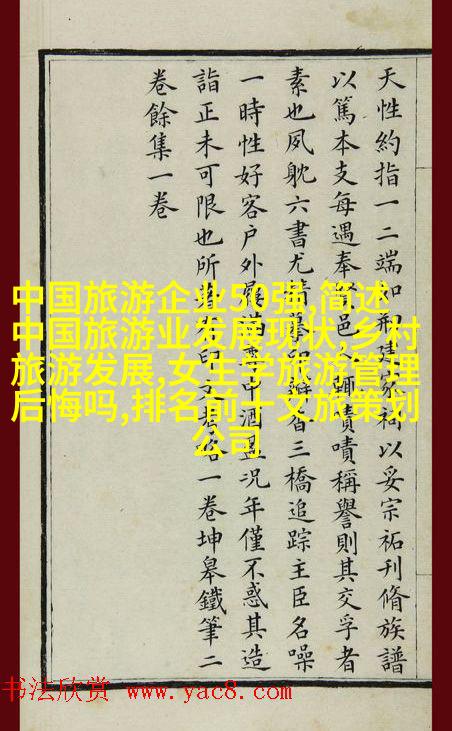 天性約指一二端如刱建家祠以妥宗祐刊脩族譜
以篤本支每遇奉邑嘖嘖稱譽則其交孚者
素也夙躭六書尤摹印瓣香三橋追踪主臣名噪
一時性好客户外屨滿尊中酒况年僅不惑其造
詣正未可限也所著有印文考略一卷坤皋鐵筆二
卷餘集一卷
中国旅游企业50强,简述
中国旅游业发展现状,乡村
旅游发展,女生学旅游管理
后悔吗,排名前十文旅策划
公司
书法欣赏 www.yac8.com